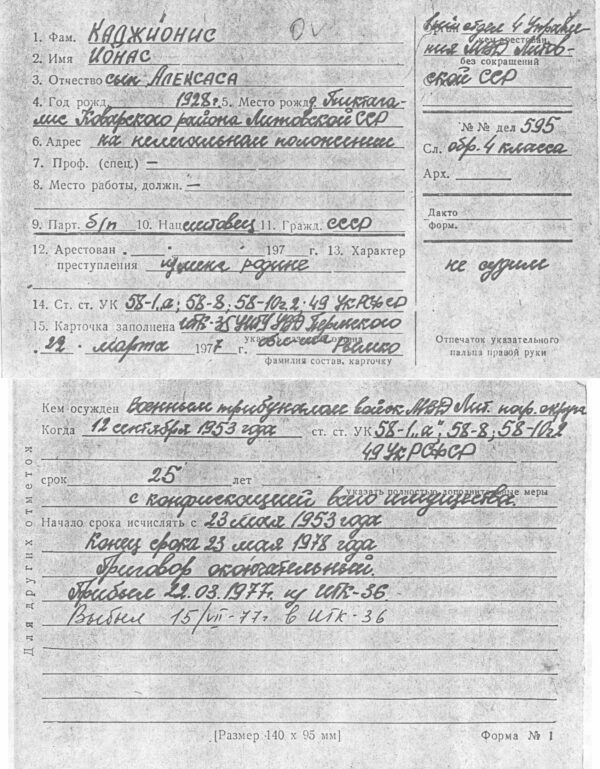 1. Фам. КАДЖИОНИС
2. Имя ЙОНАС
3. Отчество сын Алексаса
4. Год рожд. 1928г. 5. Место рожд. д. Пиктага-
лис Коварского района Литовской ССР
6. Адрес на нелегальном положении
7. Проф. (спец.) —
8. Место работы, должн. —
9. Парт. б/п 10. Нац. литовец 11. Гражд. СССР
12. Арестован 197 г. 13. Характер
преступления измена родине
14. Ст. ст. УК 58-1„а; 58-8; 58-10ч2; 49 УкРСФСР
15. Карточка заполнена ИТК-35 УИТУ УВД Пермского
22 марта 1977 г.
фамилия состав. карточку
отдел 4 Управле-
кем арестован
ния МВД Литов-
без сокращений
ской ССР
№№ дел 595
Сл. обр. 4 класса
Арх.
Дакто
форм.
не судим
Отпечаток указательного
пальца правой руки
Для других отметок
Кем осужден Военным трибуналом войск МВД Лит. пар. округа
Когда 12 сентября 1953 года ст. ст. УК 58-1„а"; 58-8; 58-10ч2
49 УкРСФСР
срок 25 лет
указать полностью дополнительные меры
с конфискацией всего имущества.
Начало срока исчислять с 23 мая 1953 года
Конец срока 23 мая 1978 года
Приговор окончательный.
Прибыл 22.03.1977. из ИТК-36.
Выбыл 15/VII-77г. в ИТК-36
[Размер 140 x 95 мм] Форма № 1